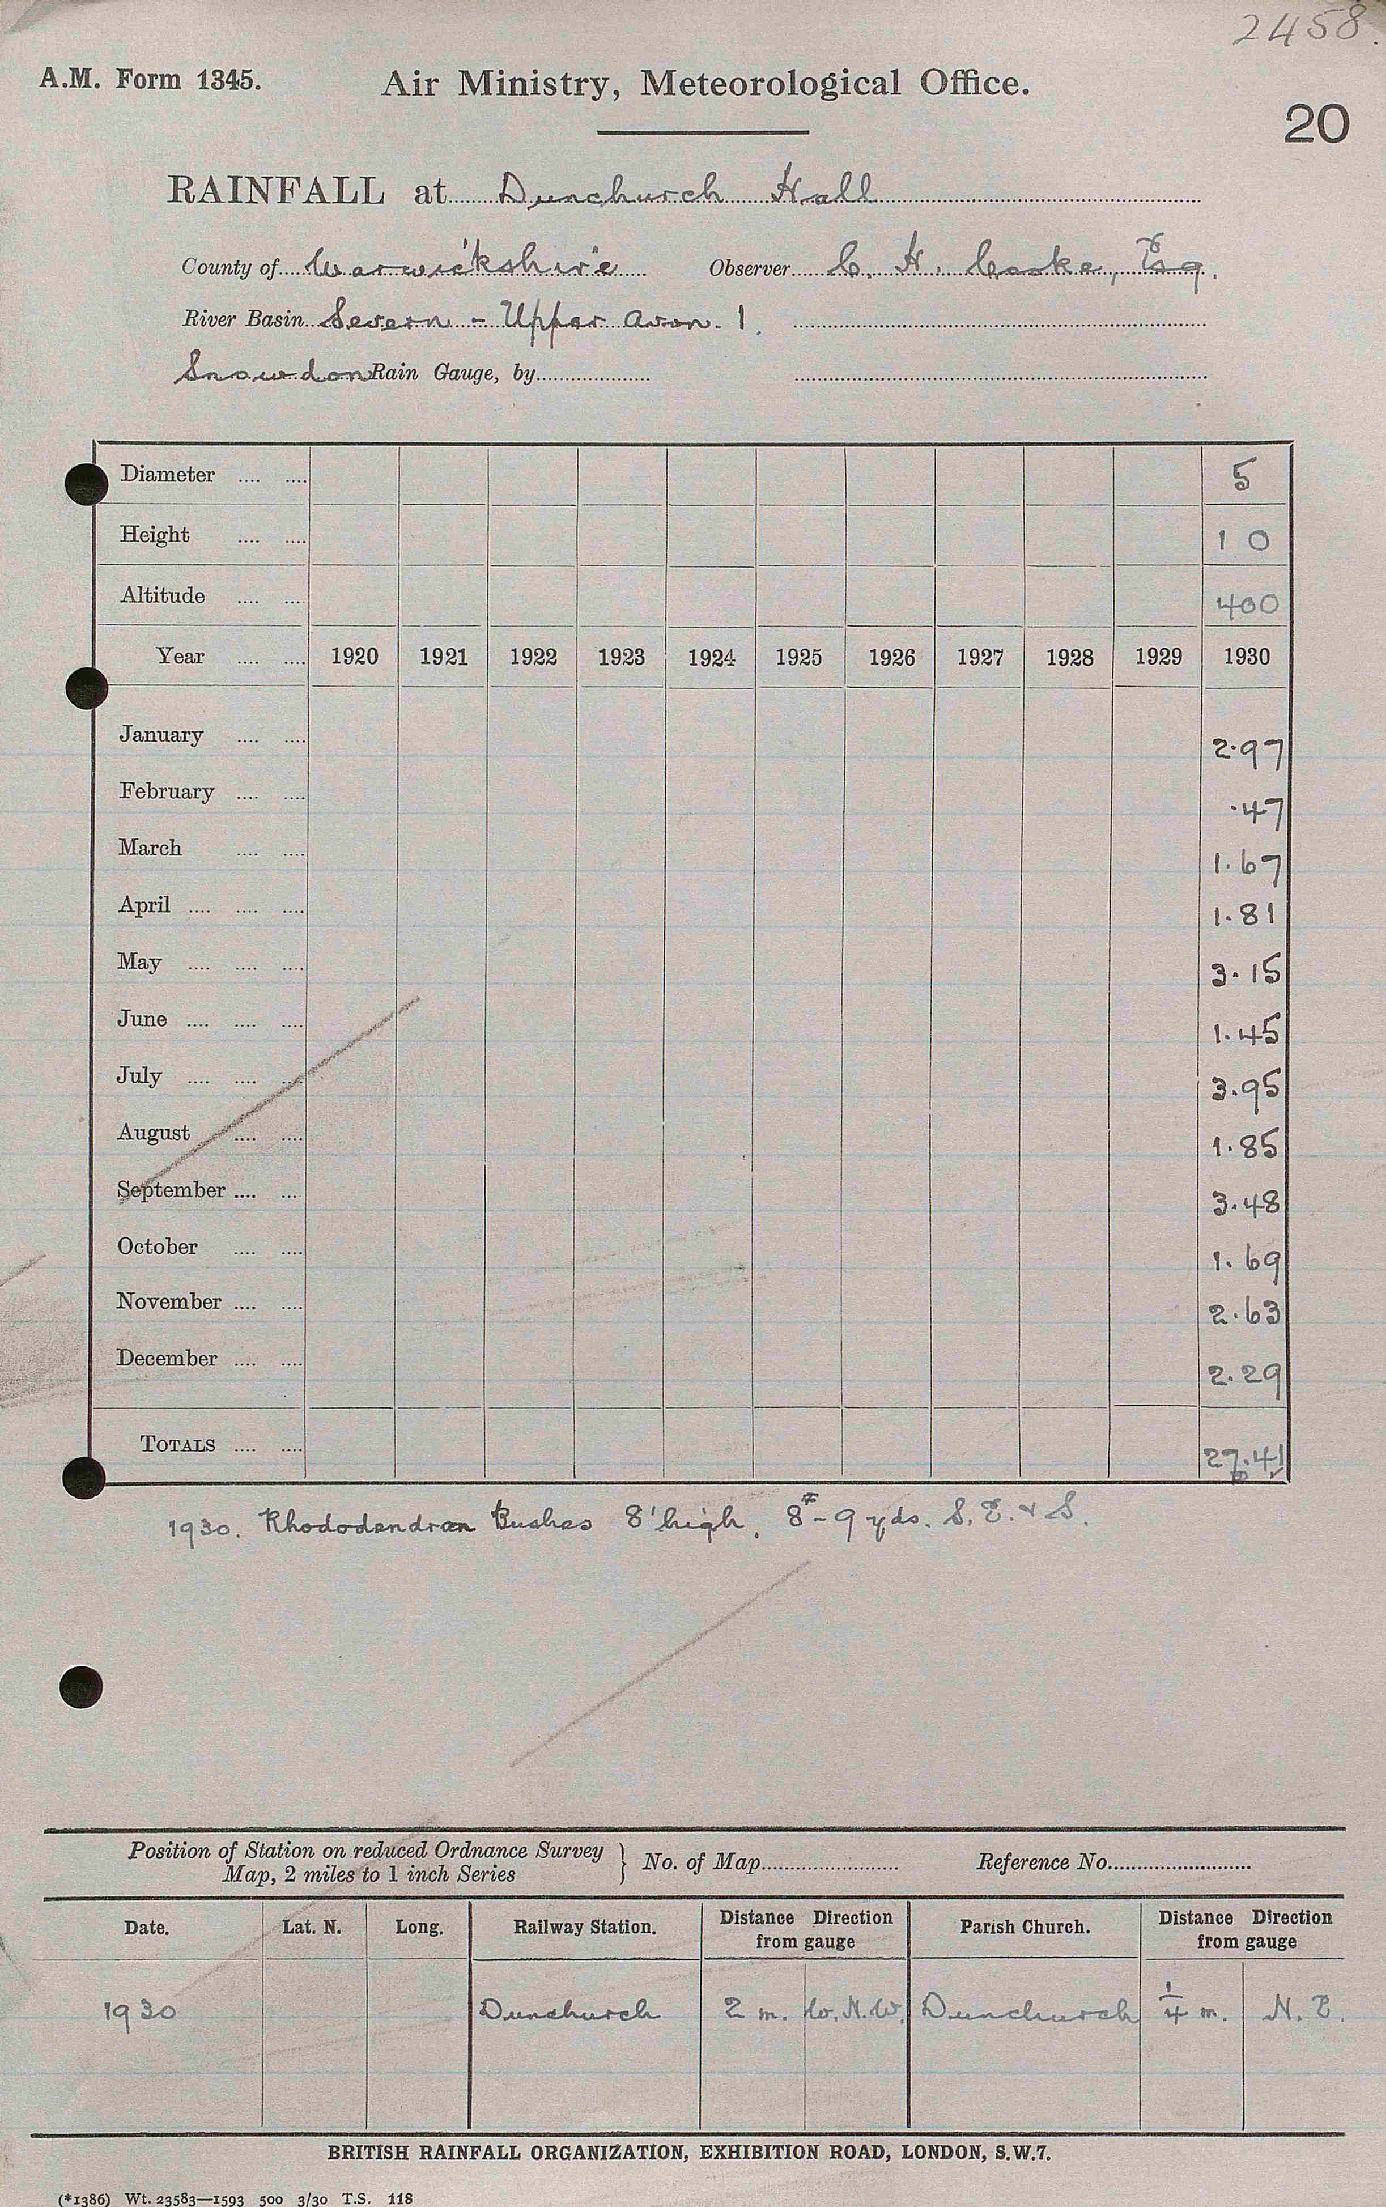 2458.
A.M. Form 1345. Air Ministry, Meteorological Office.
20
RAINFALL at Dunchurch Hall
County of Warwickshire Observer C. H. Cooke, Esq.
River Basin Severn - Upper Avon. 1.
Snowdon Rain Gauge, by
Diameter 5
Height 1 0
Altitude 400
Year 1920 1921 1922 1923 1924 1925 1926 1927 1928 1929 1930
January 2.97
February .47
March 1.67
April 1.81
May 3.15
June 1.45
July 3.95
August 1.85
September 3.48
October 1.69
November 2.63
December 2.29
TOTALS 27.41
1930. Rhododendron Bushes 8' high. 8-9 yds. S.E. & S.
Position of Station on reduced Ordnance Survey
Map, 2 miles to 1 inch Series } No. of Map Reference No.
Date. Lat. N. Long. Railway Station. Distance Direction from gauge Parish Church. Distance Direction from gauge
1930 Dunchurch 2 m. W.N.W. Dunchurch 1/4 m. N.E.
BRITISH RAINFALL ORGANIZATION, EXHIBITION ROAD, LONDON, S.W.7.
(*1386) Wt. 23583—1593 500 3/30 T.S. 118